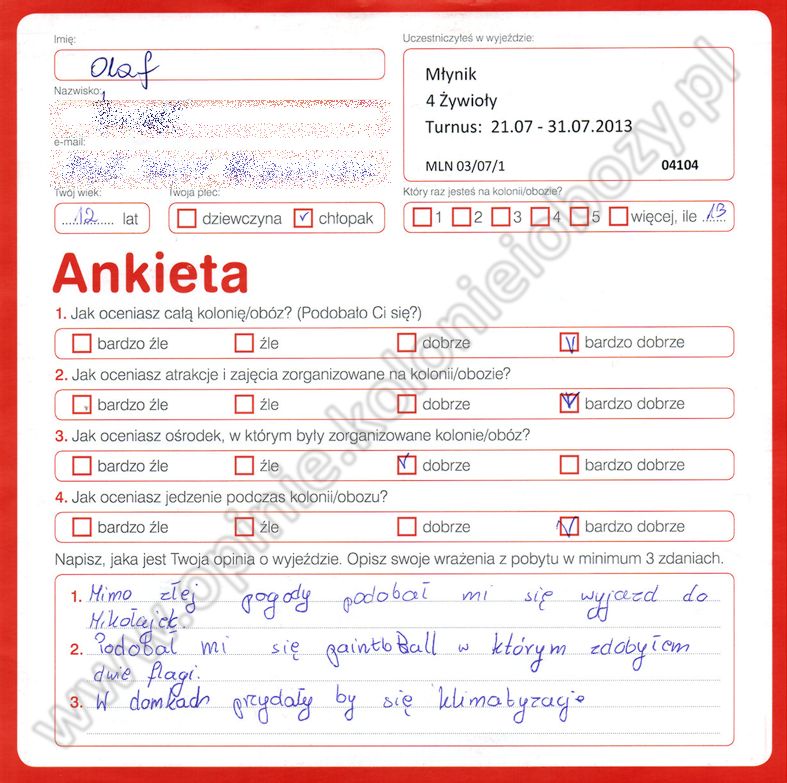 Imię:
Olaf
Uczestniczyłeś w wyjeździe:
Młynik
4 Żywioły
Turnus: 21.07 - 31.07.2013
MLN 03/07/1 04104
Nazwisko:
e-mail:
Twój wiek:
12 lat
Twoja płeć:
dziewczyna chłopak
Który raz jesteś na kolonii/obozie?
1 2 3 4 5 więcej, ile 13
Ankieta
1. Jak oceniasz całą kolonię/obóz? (Podobało Ci się?)
bardzo źle źle dobrze bardzo dobrze
2. Jak oceniasz atrakcje i zajęcia zorganizowane na kolonii/obozie?
bardzo źle źle dobrze bardzo dobrze
3. Jak oceniasz ośrodek, w którym były zorganizowane kolonie/obóz?
bardzo źle źle dobrze bardzo dobrze
4. Jak oceniasz jedzenie podczas kolonii/obozu?
bardzo źle źle dobrze bardzo dobrze
Napisz, jaka jest Twoja opinia o wyjeździe. Opisz swoje wrażenia z pobytu w minimum 3 zdaniach.
1. Mimo złej pogody podobał mi się wyjazd do
Mikołajek.
2. Podobał mi się paintbBall w którym zdobyłem
dwie flagi.
3. W domkach przydały by się klimatyzacje
www.opinie.kolonieiobozy.pl